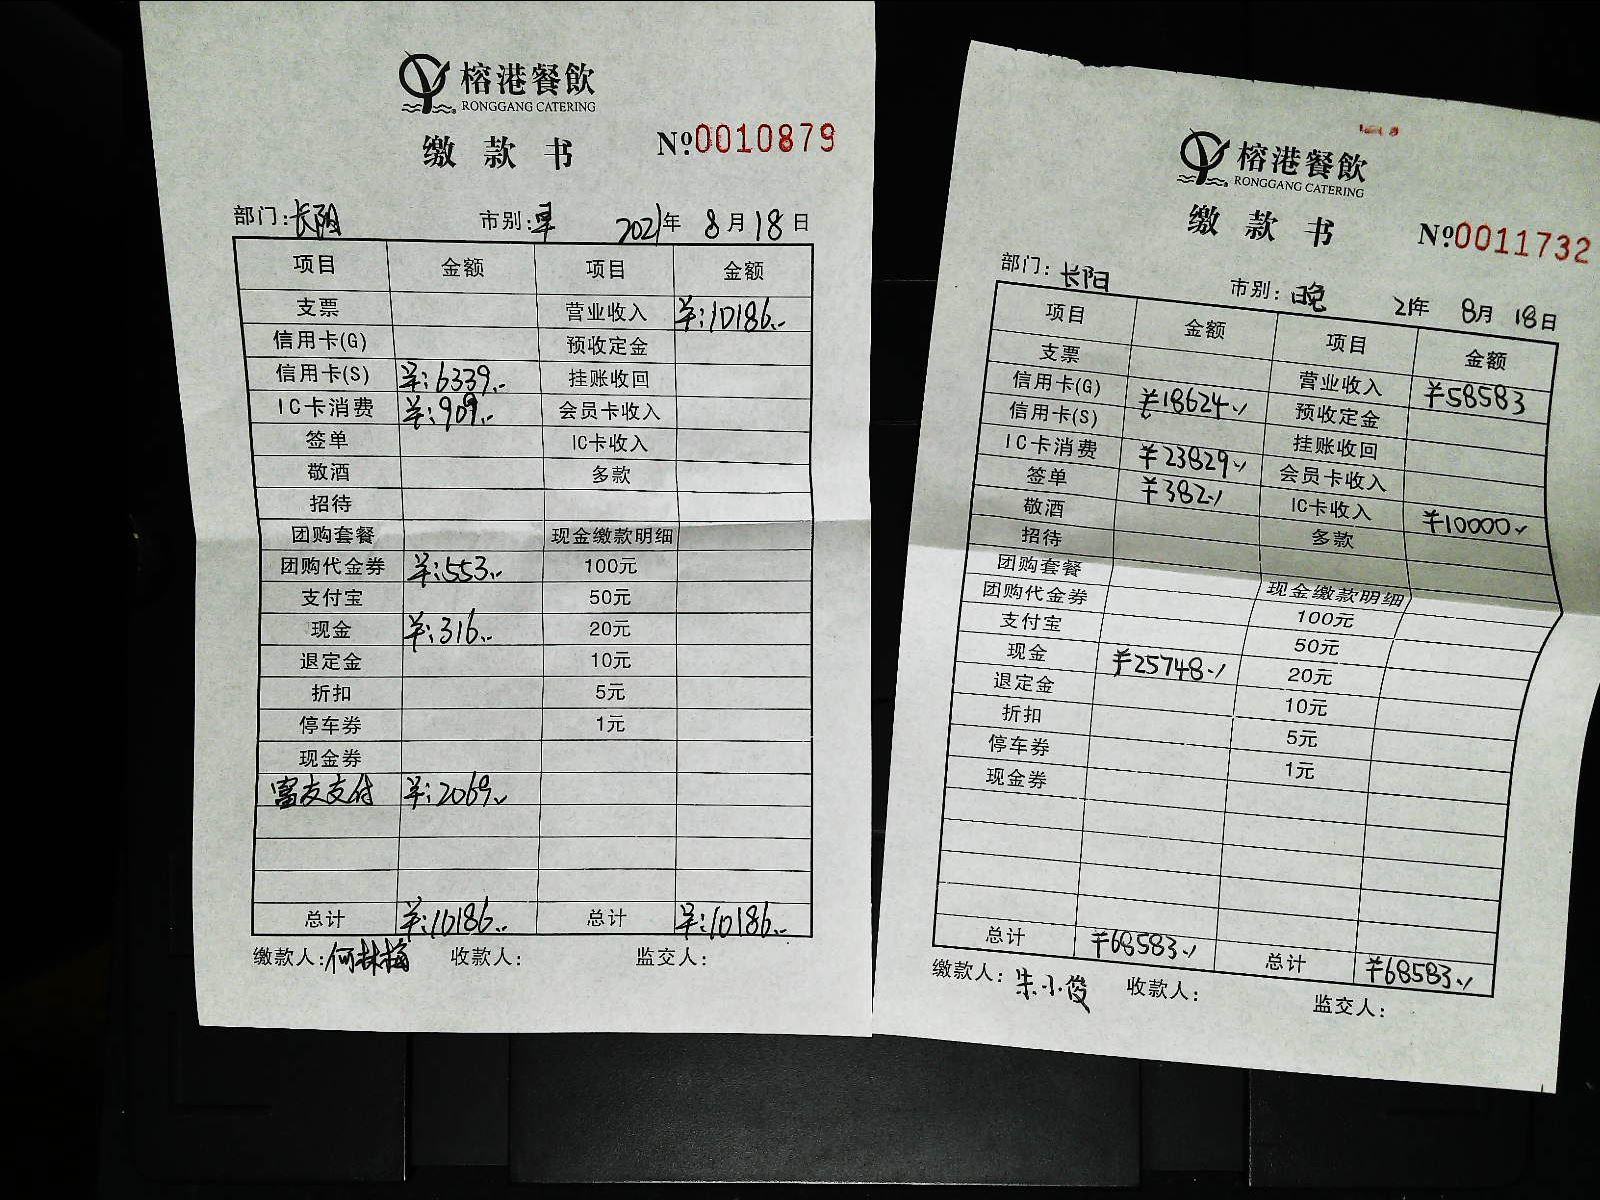 榕港餐飲
RONGGANG CATERING
缴款书 Nº0010879
部门:长阳 市别:早 2021年 8月18日
项目 金额 项目 金额
支票 营业收入 ¥:10186.-
信用卡(G) 预收定金
信用卡(S) ¥:6339.- 挂账收回
IC卡消费 ¥:909.- 会员卡收入
签单 IC卡收入
敬酒 多款
招待
团购套餐 现金缴款明细
团购代金券 ¥:553.- 100元
支付宝 50元
现金 ¥:316.- 20元
退定金 10元
折扣 5元
停车券 1元
现金券
富友支付 ¥:2069.-
总计 ¥:10186.- 总计 ¥:10186.-
缴款人:何林梅 收款人: 监交人:
榕港餐飲
RONGGANG CATERING
缴款书 Nº0011732
部门:长阳 市别:晚 21年 8月 18日
项目 金额 项目 金额
支票 营业收入 ¥58583
信用卡(G) ¥18624.- 预收定金
信用卡(S) 挂账收回
IC卡消费 ¥23829.- 会员卡收入
签单 ¥382.- IC卡收入 ¥10000.-
敬酒 多款
招待
团购套餐 现金缴款明细
团购代金券 100元
支付宝 50元
现金 ¥25748.- 20元
退定金 10元
折扣 5元
停车券 1元
现金券
总计 ¥68583.- 总计 ¥68583.-
缴款人:朱小俊 收款人: 监交人: